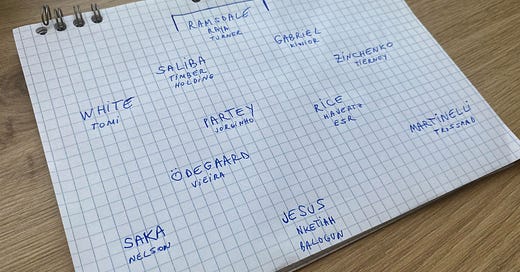 RAMSDALE
RAYA
TURNER
GABRIEL
KIWIOR
SALIBA
TIMBER
HOLDING
ZINCHENKO
TIERNEY
WHITE
TOMI
PARTEY
JORGINHO
RICE
HAVERTZ
ESR
MARTINELLI
TROSSARD
ÖDEGAARD
VIEIRA
SAKA
NELSON
JESUS
NKETIAH
BALOGUN